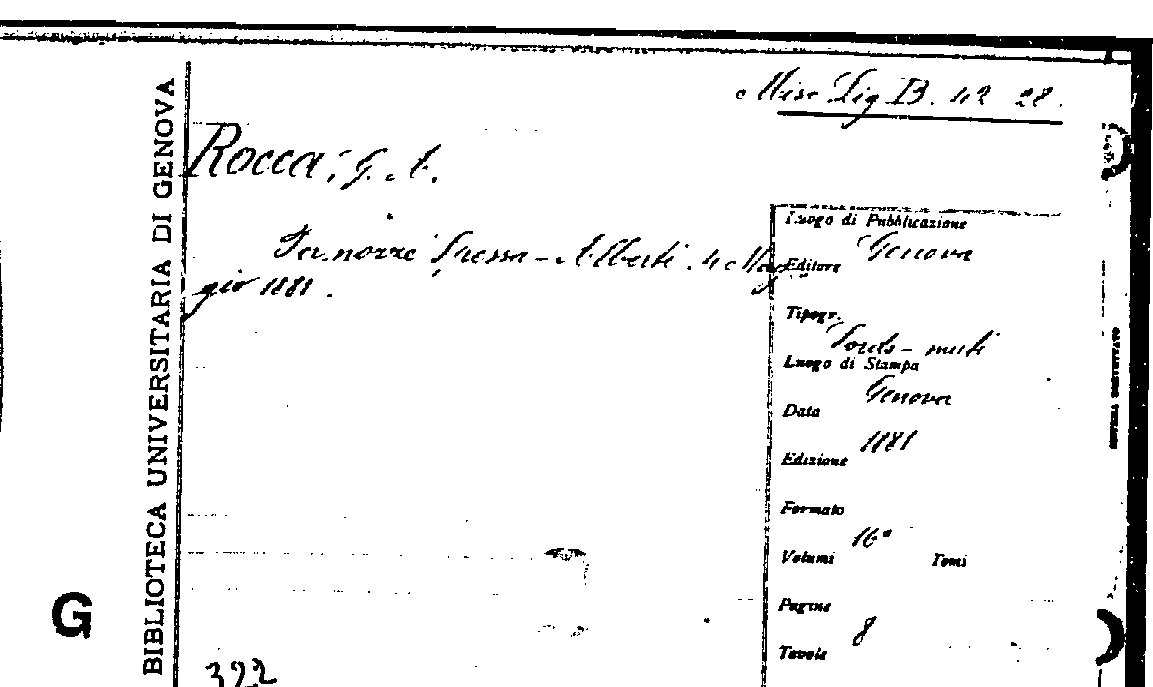 Misc Lig B. 42 28.
BIBLIOTECA UNIVERSITARIA DI GENOVA
Rocca, G. A.
Per nozze Spessa - Alberti. 4 Mag
gio 1881.
Luogo di Pubblicazione
Genova
Editore
Tipogr.
Sordo-muti
Luogo di Stampa
Genova
Data
1881
Edizione
Formato
16°
Volumi Tomi
Pagine
8
Tavole
G
322